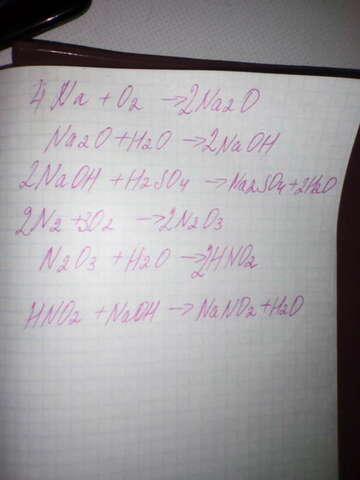 4Na + O2 → 2Na2O
Na2O + H2O → 2NaOH
2NaOH + H2SO4 → Na2SO4 + 2H2O
2N2 + 3O2 → 2N2O3
N2O3 + H2O → 2HNO2
HNO2 + NaOH → NaNO2 + H2O